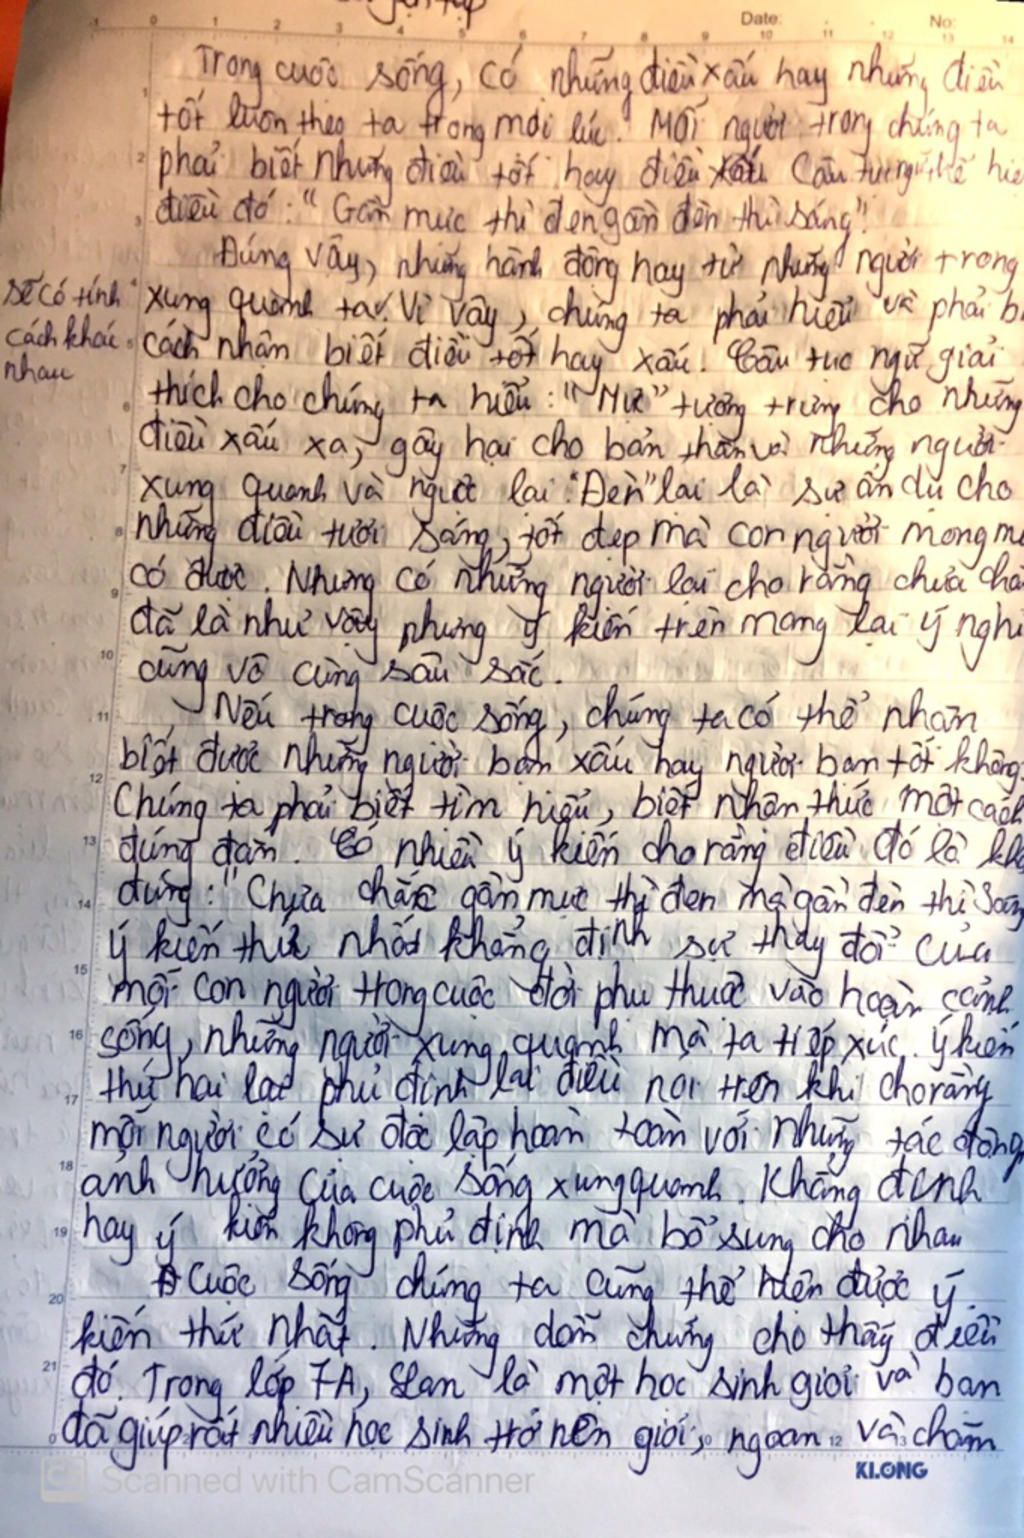 Date: No:
Trong cuộc sống, có những điều xấu hay những điều
tốt luôn theo ta trong mọi lúc. Mỗi người trong chúng ta
phải biết những điều tốt hay điều xấu Câu tục ngữ thể hiệ
điều đó: "Gần mực thì đen gần đèn thì sáng"!
Đúng vậy, những hành động hay từ những người trong
sẽ có tính
cách khác
nhau
xung quanh ta. Vì vậy, chúng ta phải hiểu và phải b
cách nhận biết điều tốt hay xấu. Câu tục ngữ giải
thích cho chúng ta hiểu: "Mự" tượng trưng cho những
điều xấu xa, gây hại cho bản thân và những người
xung quanh và ngược lại "Đèn" lại là sự ẩn dụ cho
những điều tươi sáng, tốt đẹp mà con người mong mu
có được. Nhưng có những người lại cho rằng chưa chắ
đã là như vậy nhưng ý kiến trên mang lại ý nghĩ
cũng vô cùng sâu sắc.
Nếu trong cuộc sống, chúng ta có thể nhận
biết được những người bạn xấu hay người bạn tốt không
Chúng ta phải biết tìm hiểu, biết nhận thức một cách
đúng đắn. Có nhiều ý kiến cho rằng điều đó là khô
đúng: "Chưa chắc gần mực thì đen mà gần đèn thì sáng
ý kiến thứ nhất khẳng định sự thay đổi của
mỗi con người trong cuộc đời phụ thuộc vào hoàn cảnh
sống, những người xung quanh mà ta tiếp xúc. ý kiến
thứ hai lại phủ định lại điều nói trên khi cho rằng
mỗi người có sự độc lập hoàn toàn với những tác động,
ảnh hưởng của cuộc sống xung quanh. Khẳng định
hay ý kiến không phủ định mà bổ sung cho nhau
Cuộc sống chúng ta cũng thể hiện được ý
kiến thứ nhất. Những dẫn chứng cho thấy điều
đó. Trong lớp 7A, Lan là một học sinh giỏi và bạn
đã giúp rất nhiều học sinh trở nên giỏi, ngoan và chăm
KLONG
Scanned with CamScanner